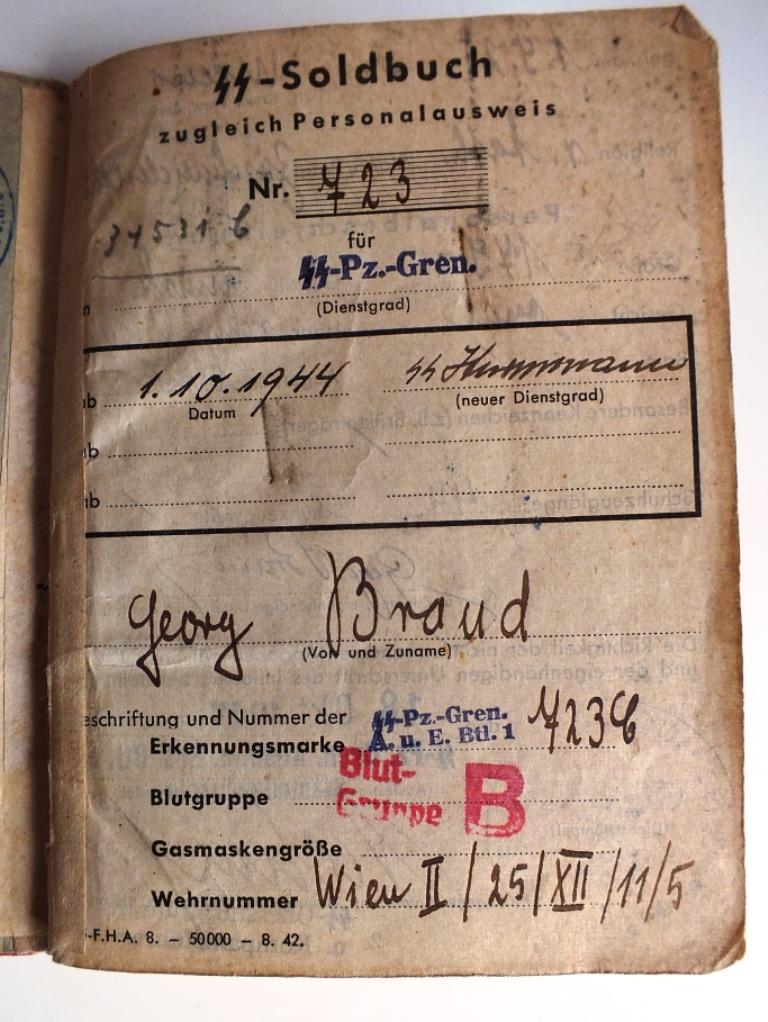 SS-Soldbuch
zugleich Personalausweis
Nr. 723
34531
für
SS-Pz.-Gren.
n
(Dienstgrad)
ab 1.10.1944 SS
Datum (neuer Dienstgrad)
ab
ab
Georg Braud
(Vor- und Zuname)
eschriftung und Nummer der SS-Pz.-Gren.
Erkennungsmarke A. u. E. Btl. 1 723
Blut-
Blutgruppe Gruppe B
Gasmaskengröße
Wehrnummer Wien II/25/XII/11/5
-F.H.A. 8. – 50000 – 8. 42.